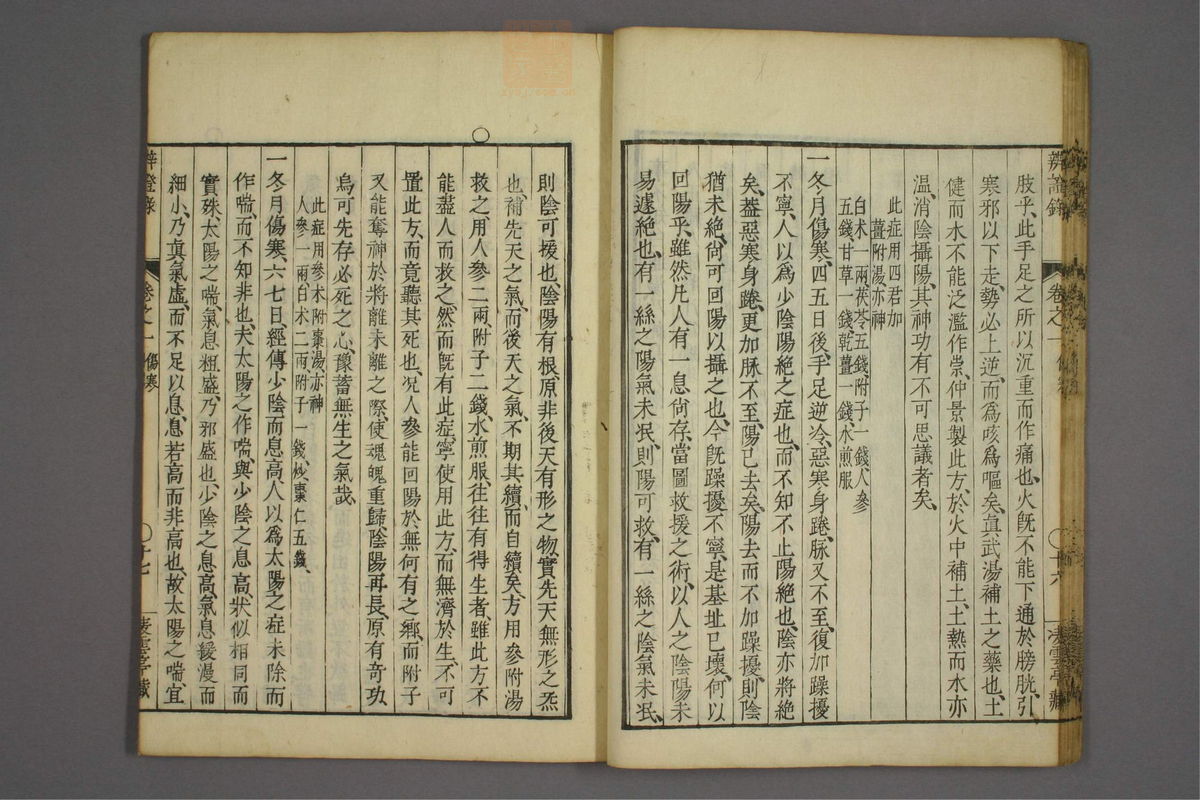 肢乎、此手足之所以沉重而作痛也、火旣不能下通於膀胱、引
寒邪以下走、勢必上逆、而爲咳爲嘔矣、眞武湯補土之藥也、土
健而水不能泛濫作祟、仲景製此方、於火中補土、土熱而水亦
温、消陰攝陽、其神功有不可思議者矣、
此症用四君加
薑附湯亦神
白术一兩茯苓五錢附子一錢人參
五錢甘草一錢乾薑一錢水煎服
一冬月傷寒、四五日後、手足逆冷、惡寒身踡、脉又不至、復加躁擾
不寧、人以爲少陰陽絶之症也、而不知不止陽絶也、陰亦將絶
矣、葢惡寒身踡、更加脉不至、陽已去矣、陽去而不加躁擾、則陰
猶未絶、尙可回陽以攝之也、今旣躁擾不寧、是基址已壞、何以
回陽乎、雖然凡人有一息尙存、當圖救援之術、以人之陰陽未
易遽絶也、有一絲之陽氣未泯、則陽可救、有一絲之陰氣未泯、
辨證錄
卷之一 傷寒
十六
凌雲亭藏
則陰可援也、陰陽有根原、非後天有形之物、實先天無形之炁
也、補先天之氣、而後天之氣、不期其續、而自續矣、方用參附湯
救之、用人參二兩、附子二錢、水煎服、往往有得生者、雖此方不
能盡人而救之、然而旣有此症、寧使用此方、而無濟於生、不可
置此方、而竟聽其死也、况人參能回陽於無何有之鄕、而附子
又能奪神於將離未離之際、使魂魄重歸、陰陽再長、原有奇功
烏可先存必死之心、豫蓄無生之氣哉、
此症用參术附棗湯、亦神
人參一兩白术二兩附子一錢、炒棗仁五錢、
一冬月傷寒、六七日、經傳少陰而息高、人以爲太陽之症未除而
作喘、而不知非也、夫太陽之作喘、與少陰之息高、狀似相同而
實殊、太陽之喘、氣息粗盛、乃邪盛也、少陰之息高、氣息緩漫而
細小、乃眞氣虛、而不足以息、息若高而非高也、故太陽之喘、宜
辨證錄
卷之一 傷寒
十七
凌雲亭藏